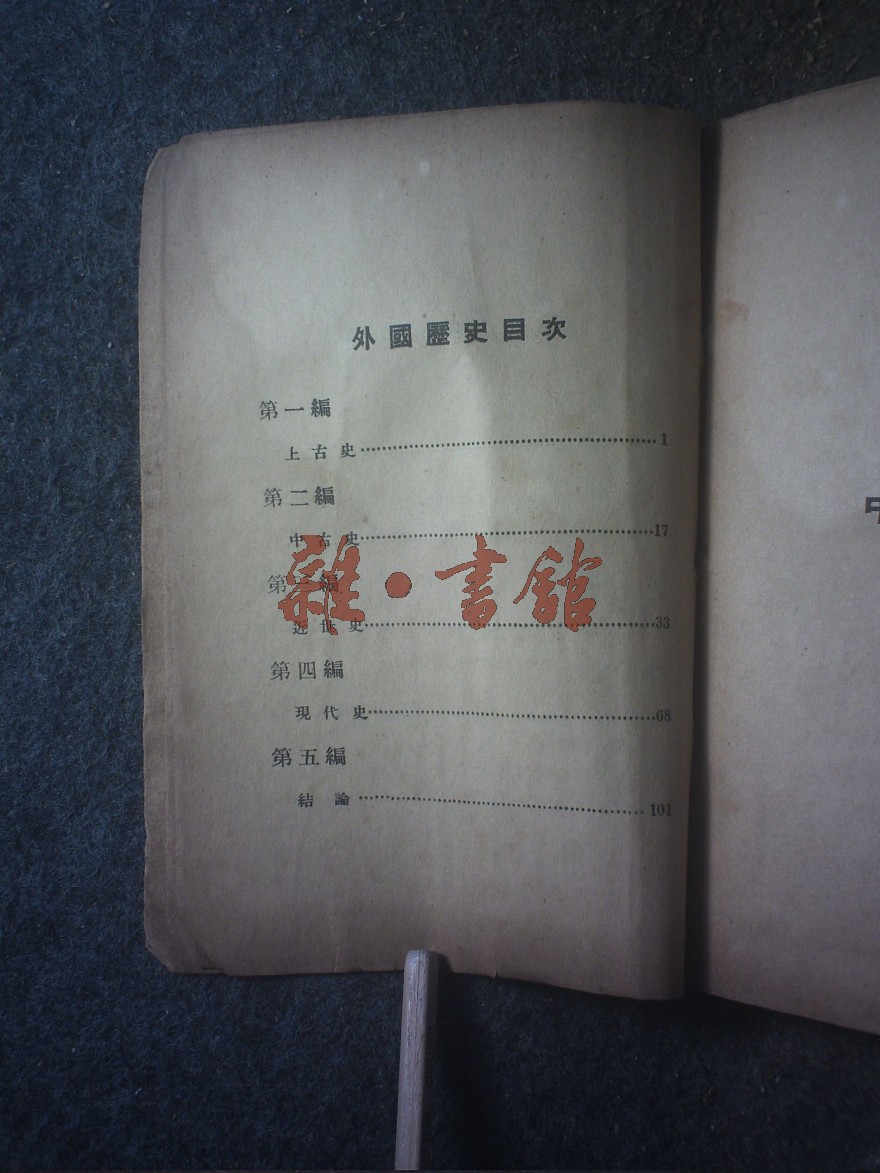 外國歷史目次
第一編
上古史 1
第二編
中古史 17
第三編
雜・書館
近世史 33
第四編
現代史 68
第五編
結論 101